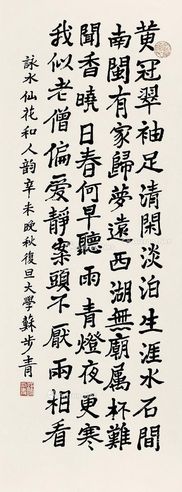 黃冠翠袖足清閑淡泊生涯水石間
南閩有家歸夢遠西湖無廟屬杯難
聞香曉日春何早聽雨青燈夜更寒
我似老僧偏愛靜案頭不厭兩相看
詠水仙花和人韵辛未晚秋復旦大學蘇步青